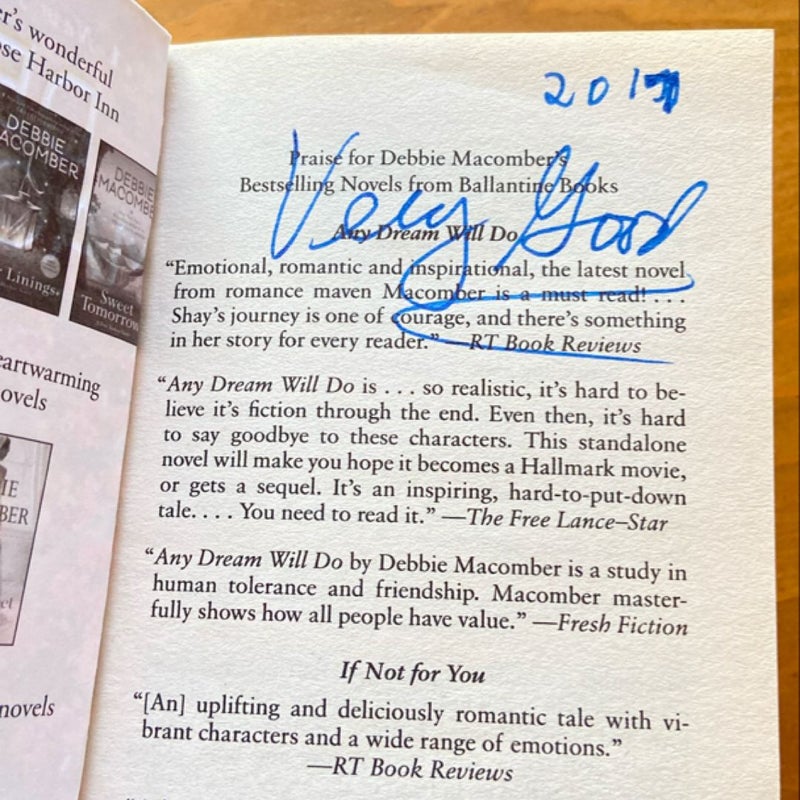 r's wonderful
ose Harbor Inn
DEBBIE
MACOMBER
Linings
DEBBIE
MACOMBE
Sweet
Tomorrow
eartwarming
ovels
IE
BER
novels
Praise for Debbie Macomber's
Bestselling Novels from Ballantine Books
Very Good
Any Dream Will Do
“Emotional, romantic and inspirational, the latest novel
from romance maven Macomber is a must read! . . .
Shay's journey is one of courage, and there's something
in her story for every reader.” —RT Book Reviews
“Any Dream Will Do is . . . so realistic, it's hard to be-
lieve it's fiction through the end. Even then, it's hard
to say goodbye to these characters. This standalone
novel will make you hope it becomes a Hallmark movie,
or gets a sequel. It's an inspiring, hard-to-put-down
tale. . . . You need to read it.” —The Free Lance–Star
“Any Dream Will Do by Debbie Macomber is a study in
human tolerance and friendship. Macomber master-
fully shows how all people have value.” —Fresh Fiction
If Not for You
“[An] uplifting and deliciously romantic tale with vi-
brant characters and a wide range of emotions.”
—RT Book Reviews